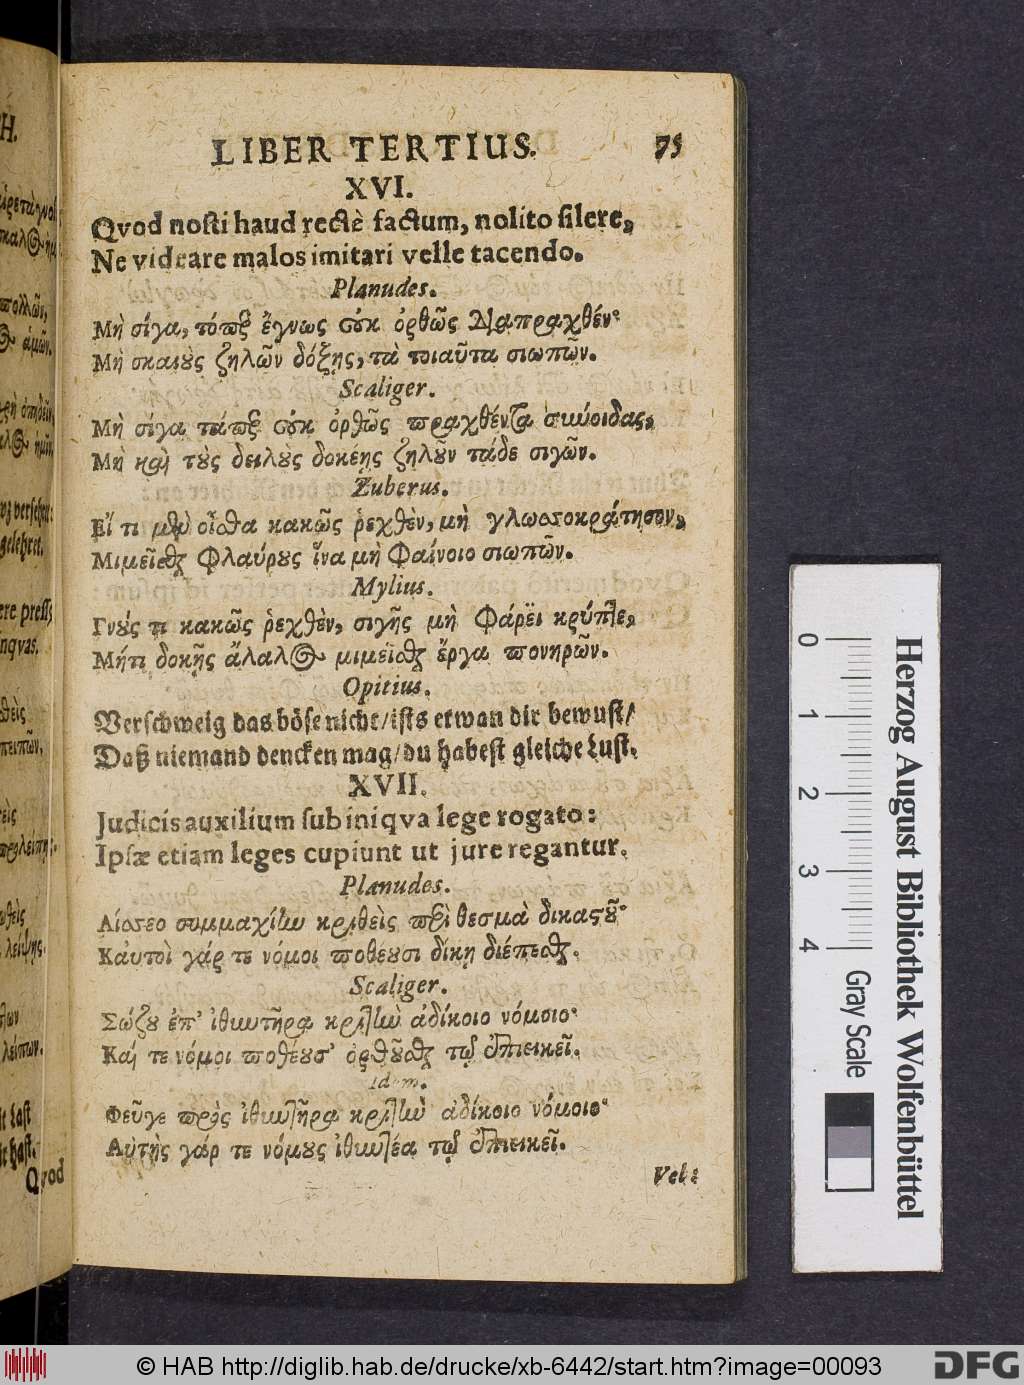 LIBER TERTIUS. 75
XVI.
Qvod nosti haud rectè factum, nolito silere,
Ne videare malos imitari velle tacendo.
Planudes.
Μὴ σίγα, τόπερ ἔγνως οὐκ ὀρθῶς διαπραχθέν·
Μὴ σκαιοὺς ζηλῶν δόξῃς, τὰ τοιαῦτα σιωπῶν.
Scaliger.
Μὴ σίγα τάπερ οὐκ ὀρθῶς πραχθέντα σύνοιδας,
Μὴ καὶ τοὺς δειλοὺς δοκέῃς ζηλοῦν τάδε σιγῶν.
Zuberus.
Εἴ τι μὲν οἶσθα κακῶς ῥεχθὲν, μὴ γλωσσοκράτησον,
Μιμεῖσθαι φλαύρους ἵνα μὴ φαίνοιο σιωπῶν.
Mylius.
Γνούς τι κακῶς ῥεχθὲν, σιγῆς μὴ φάρεϊ κρύπτε,
Μήτι δοκῇς ἄλαλος μιμεῖσθαι ἔργα πονηρῶν.
Opitius.
Verschweig das böse nicht/ ists etwan dir bewust/
Daß niemand dencken mag/ du habest gleiche Lust.
XVII.
Judicis auxilium sub iniqva lege rogato:
Ipsæ etiam leges cupiunt ut jure regantur.
Planudes.
Αἴσεο συμμαχίην κριθεὶς περὶ θεσμὰ δικαστοῦ·
Καὐτοὶ γάρ τε νόμοι ποθέουσι δίκῃ διέπεσθαι.
Scaliger.
Σώζου ἐπ' ἰθυντῆρα κριτὴν ἀδίκοιο νόμοιο·
Καί τε νόμοι ποθέουσ' ὀρθοῦσθαι τῷ ἐπιεικεῖ.
Idem.
Φεῦγε πρὸς ἰθυντῆρα κριτὴν ἀδίκοιο νόμοιο·
Αὐτῆς γάρ τε νόμους ἰθυντέα τῷ ἐπιεικεῖ.
Vel:
H.
πολλῶν,
gelehret.
inqvas.
λείψῃς.
Qvod
0 1 2 3 4
Herzog August Bibliothek Wolfenbüttel
Gray Scale
© HAB http://diglib.hab.de/drucke/xb-6442/start.htm?image=00093
DFG